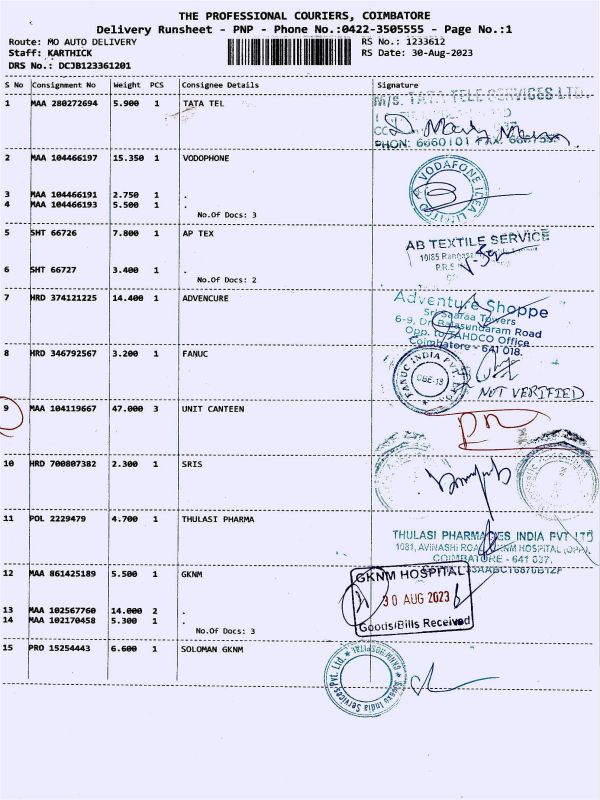 THE PROFESSIONAL COURIERS, COIMBATORE
Delivery Runsheet - PNP - Phone No.:0422-3505555 - Page No.:1
Route: MO AUTO DELIVERY RS No.: 1233612
Staff: KARTHICK RS Date: 30-Aug-2023
DRS No.: DCJB123361201
S No Consignment No Weight PCS Consignee Details Signature
1 MAA 280272694 5.900 1 TATA TEL
M/S. TATA TELE SERVICES LTD.
PHON: 6660101 FAX:
2 MAA 104466197 15.350 1 VODOPHONE
VODAFONE IDEA LIMITED
3 MAA 104466191 2.750 1 .
4 MAA 104466193 5.500 1 .
No.Of Docs: 3
5 SHT 66726 7.800 1 AP TEX
AB TEXTILE SERVICE
10/85
P.R.S
6 SHT 66727 3.400 1 .
No.Of Docs: 2
7 HRD 374121225 14.400 1 ADVENCURE
Adventure Shoppe
Sri Saaraa Towers
6-9, Dr. Balasundaram Road
Opp. to SAHDCO Office
Coimbatore - 641 018.
8 HRD 346792567 3.200 1 FANUC
FANUC INDIA PVT. LTD.
CBE-18
NOT VERIFIED
9 MAA 104119667 47.000 3 UNIT CANTEEN
10 HRD 700807382 2.300 1 SRIS
11 POL 2229479 4.700 1 THULASI PHARMA
THULASI PHARMACIES INDIA PVT LTD
1081, AVINASHI ROAD, GKNM HOSPITAL (OPP),
COIMBATORE - 641 037.
12 MAA 861425189 5.500 1 GKNM
GKNM HOSPITAL
30 AUG 2023
Goods/Bills Received
13 MAA 102567760 14.000 2 .
14 MAA 102170458 5.300 1 .
No.Of Docs: 3
15 PRO 15254443 6.600 1 SOLOMAN GKNM
India Services Pvt. Ltd.
GKNM HOSPITAL